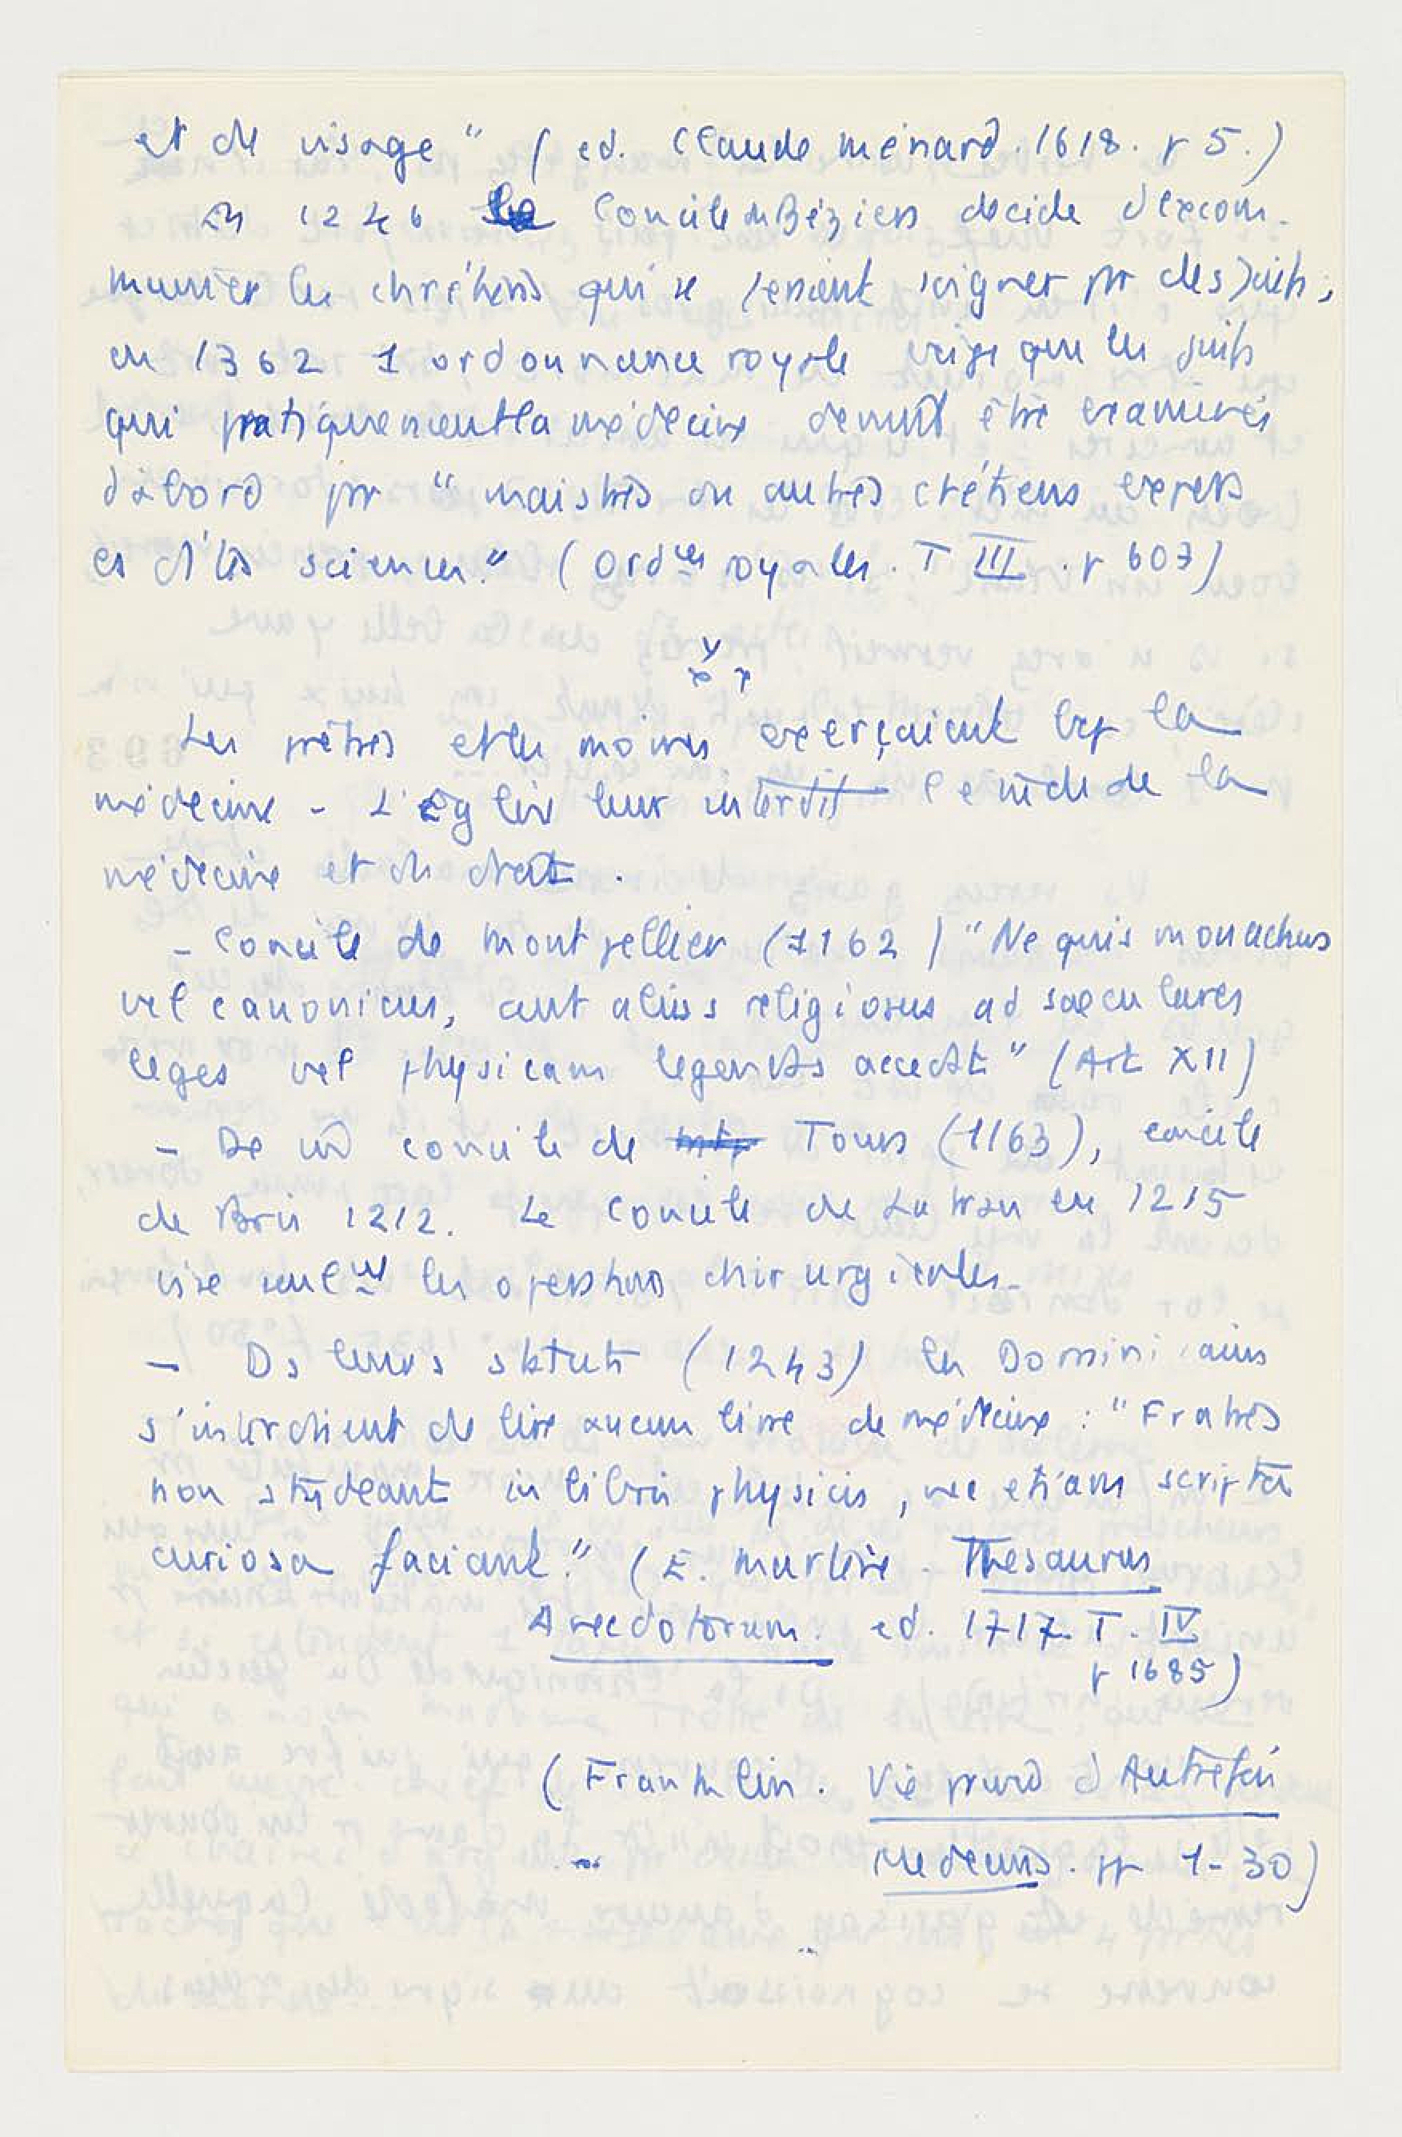 et de visage" (ed. Claude Ménard. 1618. p 5.)
En 1246 le Concile de Béziers décide d'excom-
munier les chrétiens qui se feraient soigner pr des juifs ;
en 1362 1 ordonnance royale exige que les juifs
qui pratiqueraient la médecine devront être examinés
d'abord pr "maistres ou autres crétiens experts
es d'tes sciences." (Ordces royales. T III. p 607)
x
x x
Les prêtres et les moines exerçaient bcp la
médecine - L'Eglise leur interdit l'étude de la
médecine et du droit.
- Concile de Montpellier (1162) "Ne quis monachus
vel canonicus, aut alius religiosus ad saeculares
leges vel physicam legendas accedat" (Art XII)
- De m̂ concile de Tours (1163), concile
de Paris 1212. Le Concile de Latran en 1215
vise seulnt les opérations chirurgicales.
- Ds leurs statuts (1243) les Dominicains
s'interdisent de lire aucun livre de médecine : "Fratres
non studeant in libris physicis, nec etiam scripta
curiosa faciant." (E. Martène. Thesaurus
Anecdotorum. ed. 1717. T. IV
p 1685)
(Franklin. Vie privée d'Autrefois
Médecins. pp 1-30)